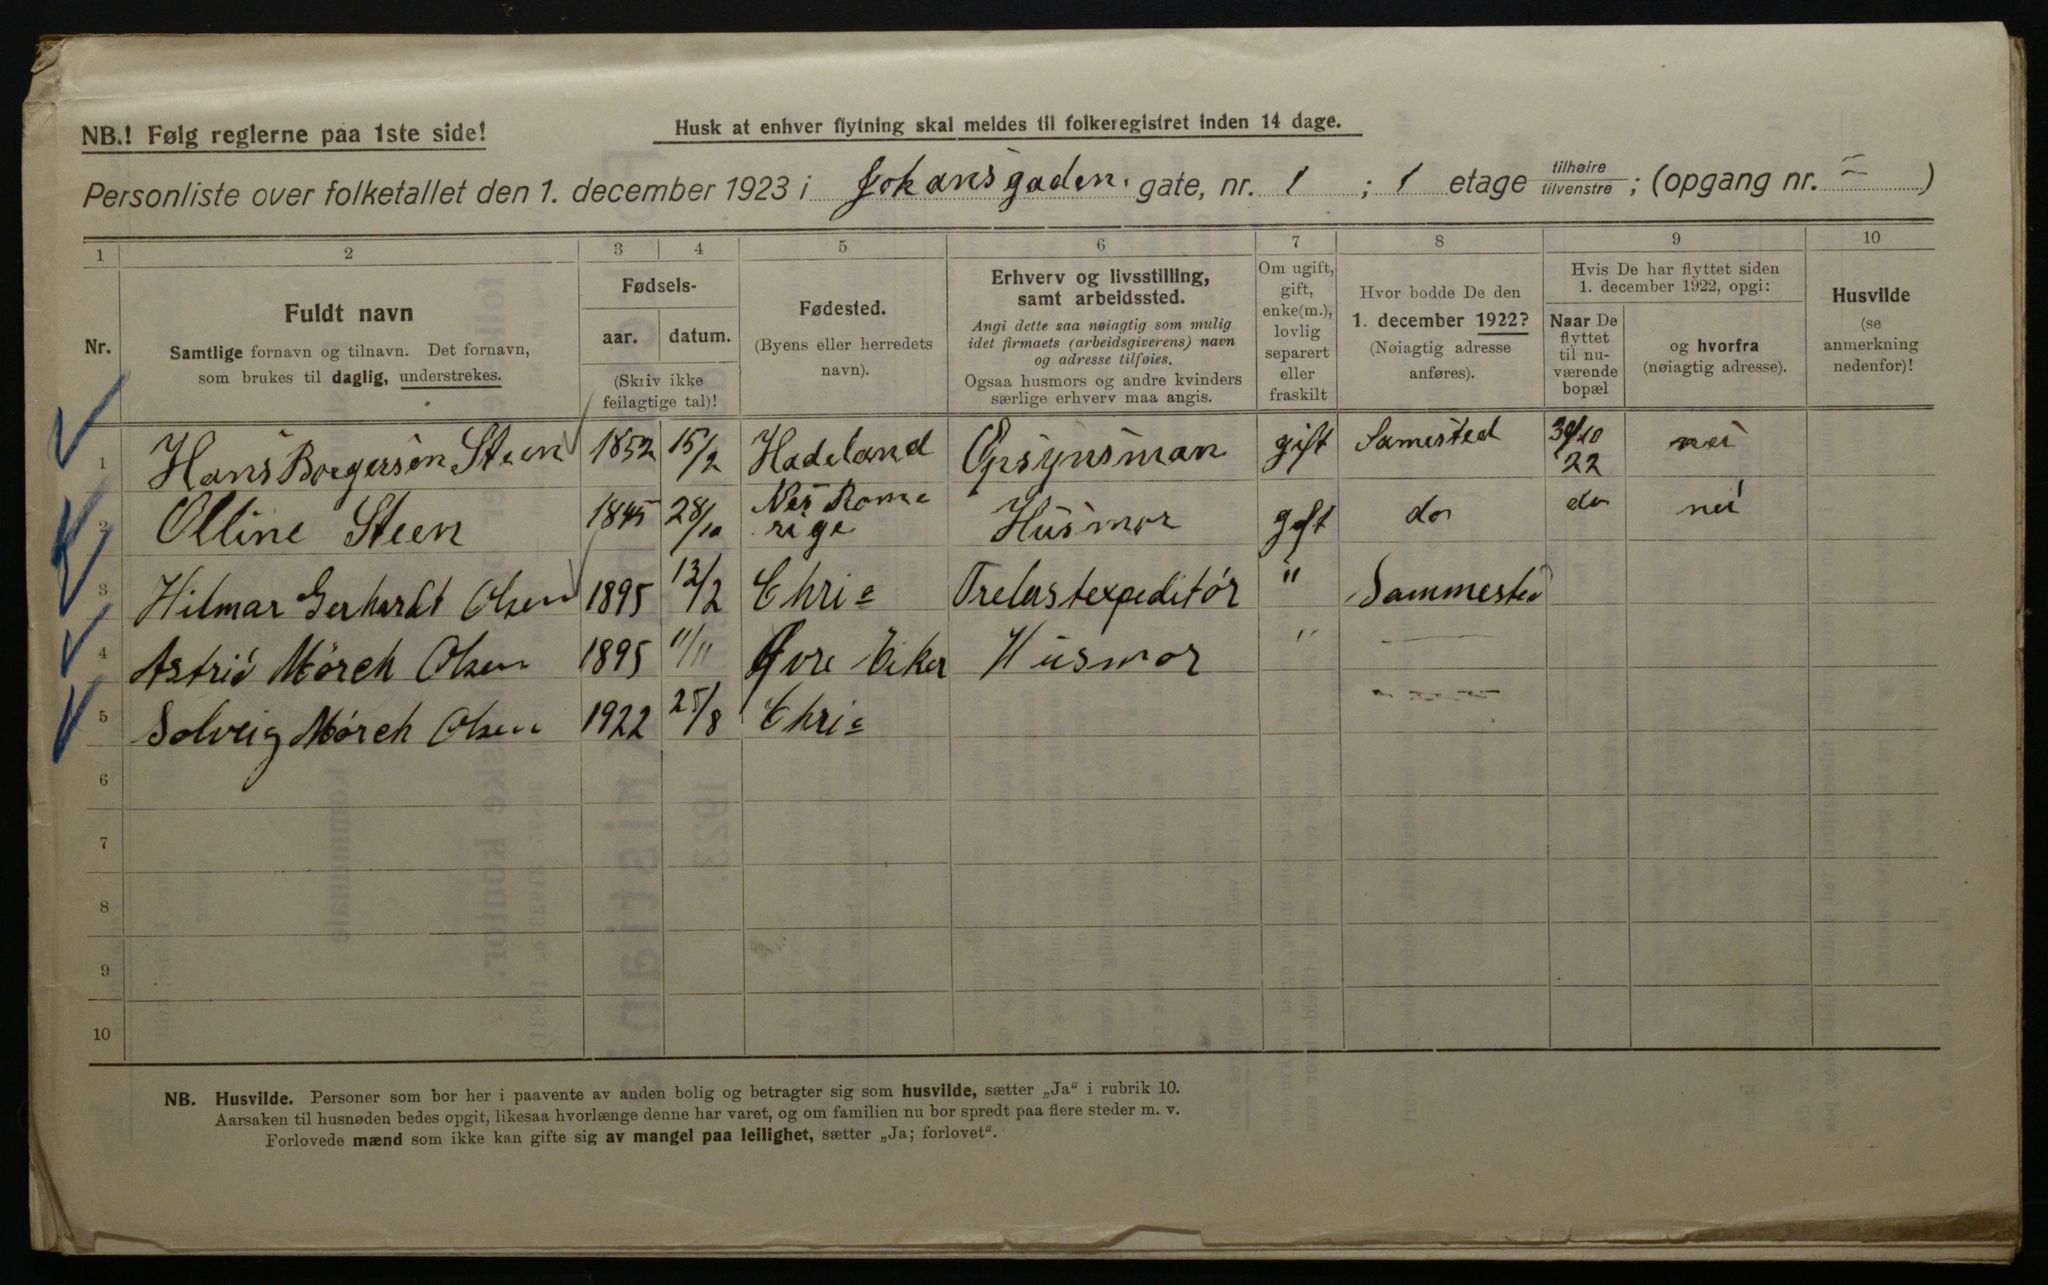 NB.! Følg reglerne paa 1ste side!
Husk at enhver flytning skal meldes til folkeregistret inden 14 dage.
Personliste over folketallet den 1. december 1923 i Johansgaden. gate, nr. 1 ; 1 etage tilhøire tilvenstre ; (opgang nr. = )
1 2 3 4 5 6 7 8 9 10
Nr.
Fuldt navn
Samtlige fornavn og tilnavn. Det fornavn,
som brukes til daglig, understrekes.
Fødsels-
aar. datum.
(Skriv ikke
feilagtige tal)!
Fødested.
(Byens eller herredets
navn).
Erhverv og livsstilling,
samt arbeidssted.
Angi dette saa nøiagtig som mulig
idet firmaets (arbeidsgiverens) navn
og adresse tilføies.
Ogsaa husmors og andre kvinders
særlige erhverv maa angis.
Om ugift,
gift,
enke(m.),
lovlig
separert
eller
fraskilt
Hvor bodde De den
1. december 1922?
(Nøiagtig adresse
anføres).
Hvis De har flyttet siden
1. december 1922, opgi:
Naar De
flyttet
til nu-
værende
bopæl
og hvorfra
(nøiagtig adresse).
Husvilde
(se
anmerkning
nedenfor)!
1 Hans Borgersen Steen 1852 15/2 Hadeland Opsynsman gift Samested 30/10 22 nei
2 Olline Steen 1845 28/10 Nes Rome rige Husmor gift do do nei
3 Hilmar Gerhardt Olsen 1895 12/2 Chria Trelastexpeditør " Sammested
4 Astrid Mørch Olsen 1895 11/11 Øvre Eiker Husmor "
5 Solveig Mørch Olsen 1922 25/8 Chria
6
7
8
9
10
NB. Husvilde. Personer som bor her i paavente av anden bolig og betragter sig som husvilde, sætter „Ja“ i rubrik 10.
Aarsaken til husnøden bedes opgit, likesaa hvorlænge denne har varet, og om familien nu bor spredt paa flere steder m. v.
Forlovede mænd som ikke kan gifte sig av mangel paa leilighet, sætter „Ja; forlovet“.